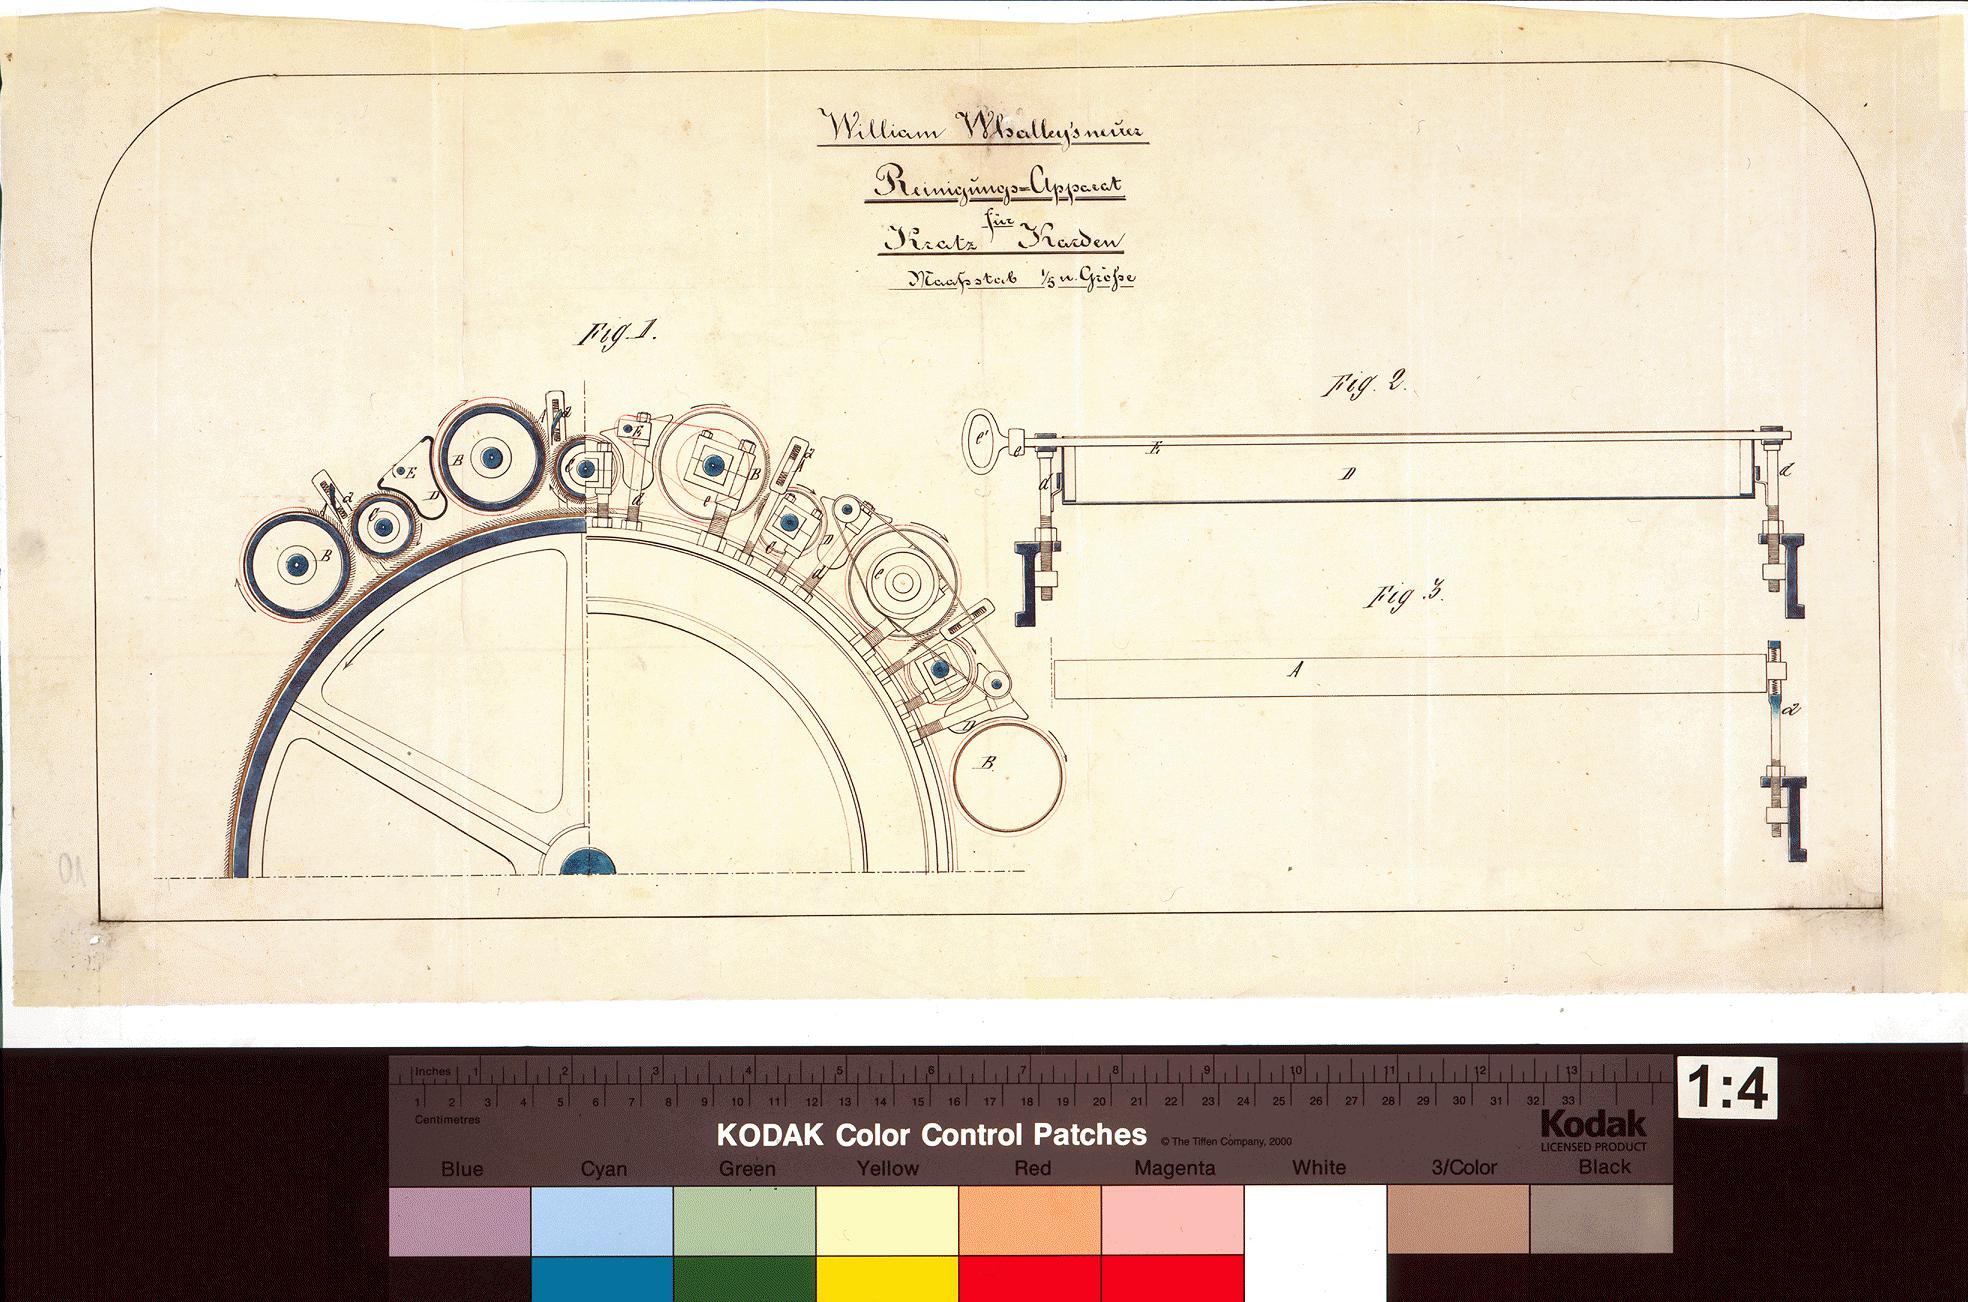 William Whalley's neuer
Reinigungs=Apparat
für
Kratz Karden
Maaßstab 1/5 n. Größe
Fig. 1.
Fig. 2.
Fig. 3.
A a
B
C
D
E
A a
B
C
E
d
B
e
A a
C
D
d
e
D
B
e'
e
E
D
d
d
A
a
10
1:4
Inches 1 2 3 4 5 6 7 8 9 10 11 12 13
1 2 3 4 5 6 7 8 9 10 11 12 13 14 15 16 17 18 19 20 21 22 23 24 25 26 27 28 29 30 31 32 33
Centimetres
KODAK Color Control Patches © The Tiffen Company, 2000
Kodak
LICENSED PRODUCT
Blue Cyan Green Yellow Red Magenta White 3/Color Black